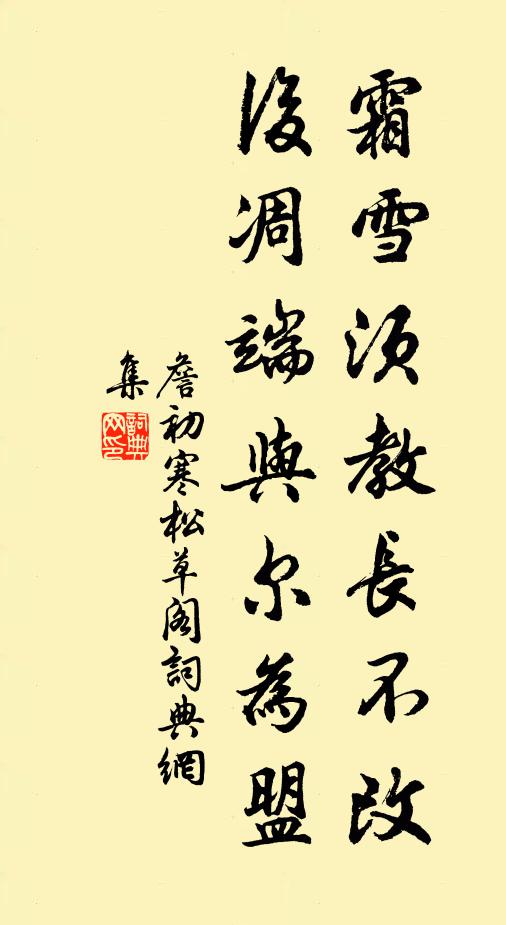 霜雪須教長不改
後凋端與尔為盟
詹初寒松草閣詞典網
集
詞典
网印